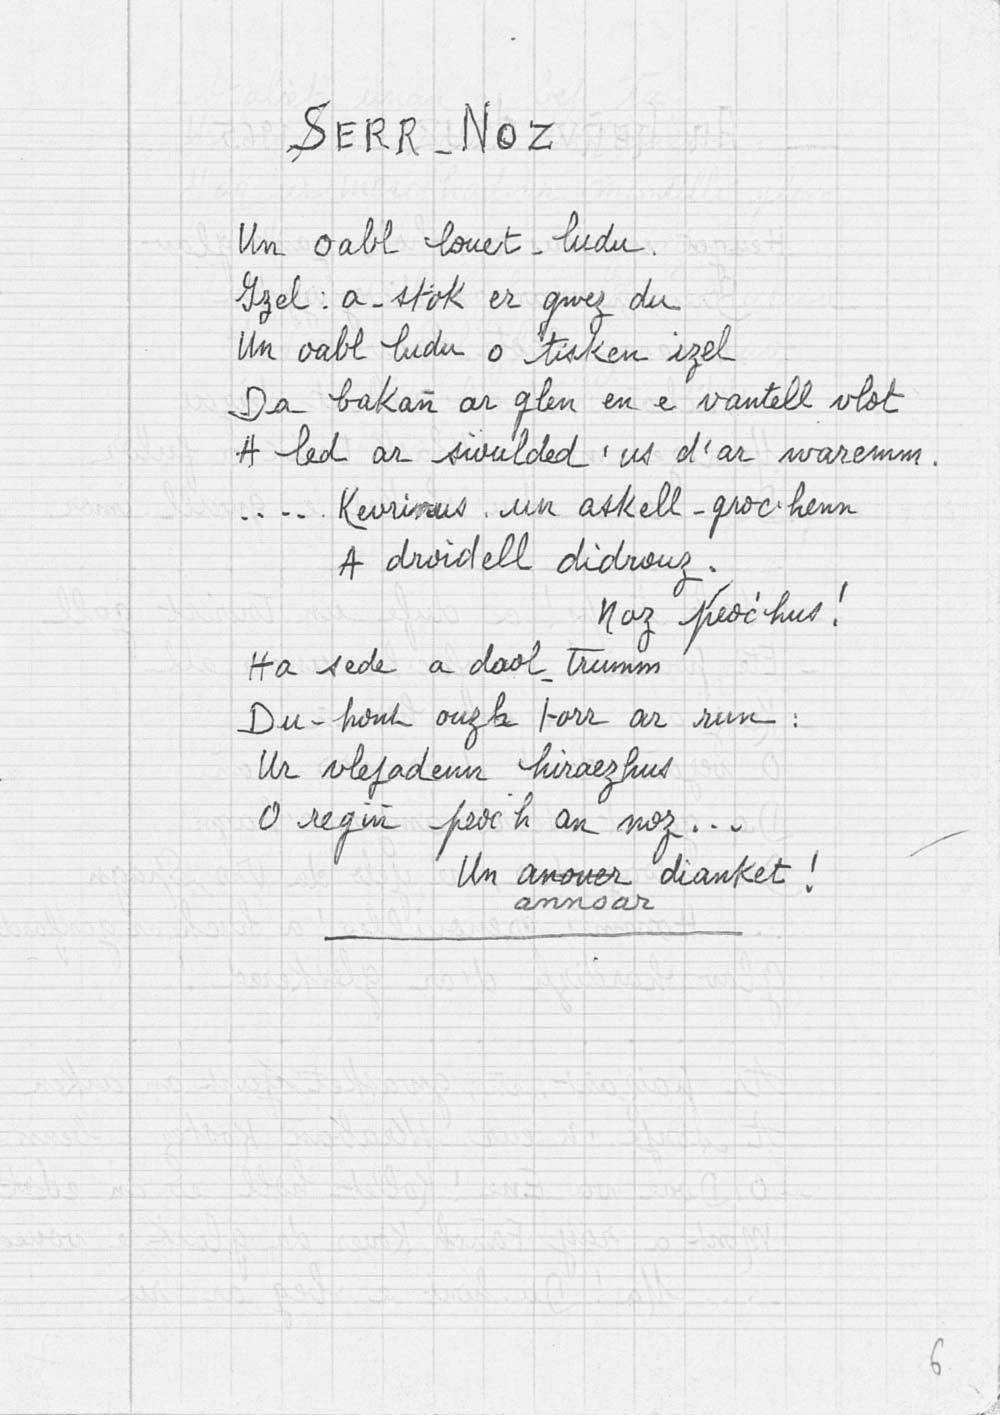 SERR-NOZ
Un oabl louet-ludu.
Izel : a-stok er gwez du
Un oabl ludu o tisken izel
Da bakañ ar glen en e vantell vlot
A led ar sioulded 'us d'ar waremm.
.... Kevrinus un askell-groc'henn
A droidell didrouz.
Noz peoc'hus!
Ha sede a daol-trumm
Du-hont ouzh torr ar run :
Ur vlejadenn hiraezhus
O regiñ peoc'h an noz...
Un anouer dianket!
annoar
6